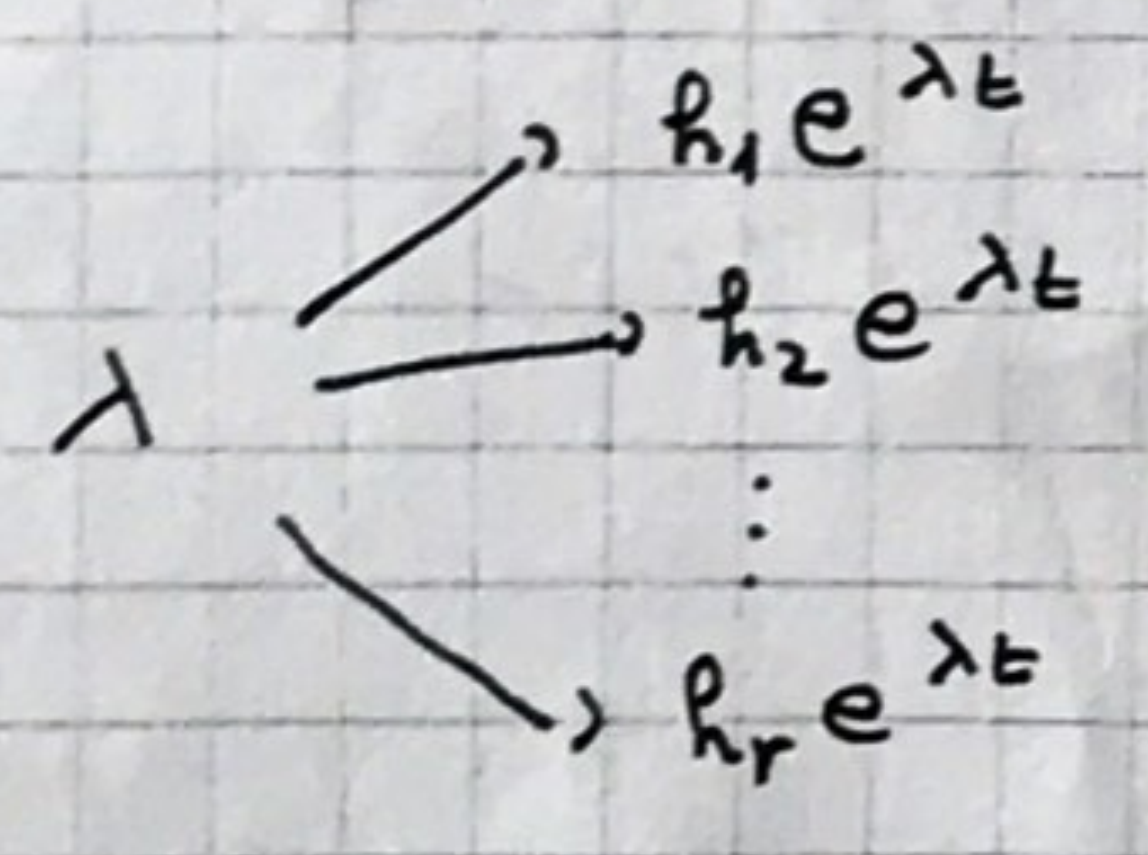 h₁ e^{λt}
h₂ e^{λt}
λ
⋮
hᵣ e^{λt}